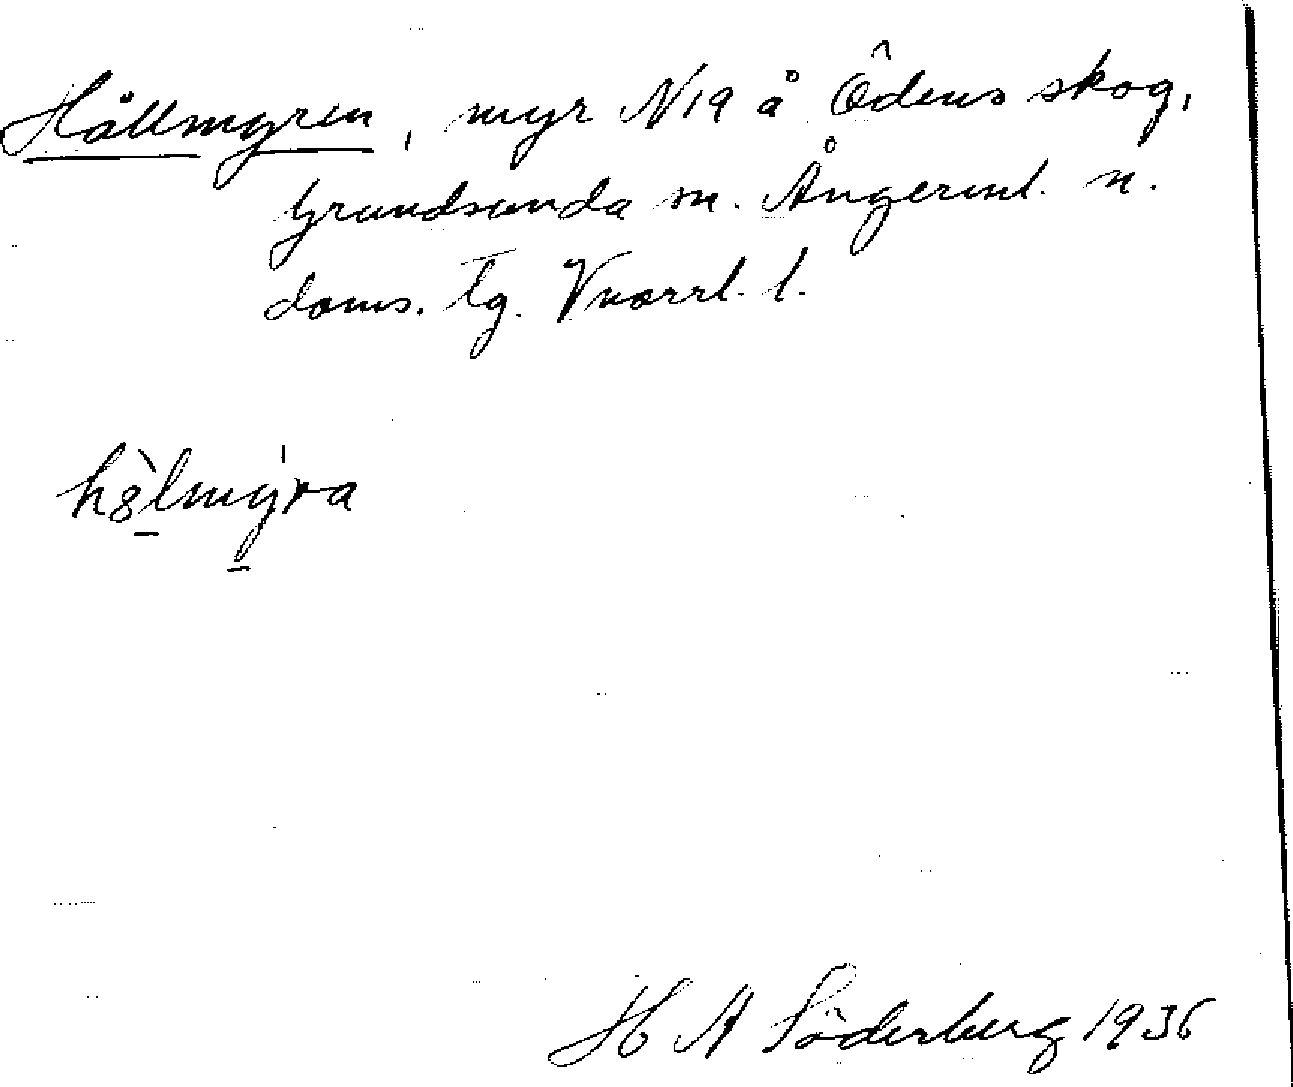 Hållmyren, myr N19 å Ödens skog,
Grundsunda sn. Ångerml. n.
doms. tg. Vnorrl. l.
hȍlmy̍ra
H A Söderberg 1936